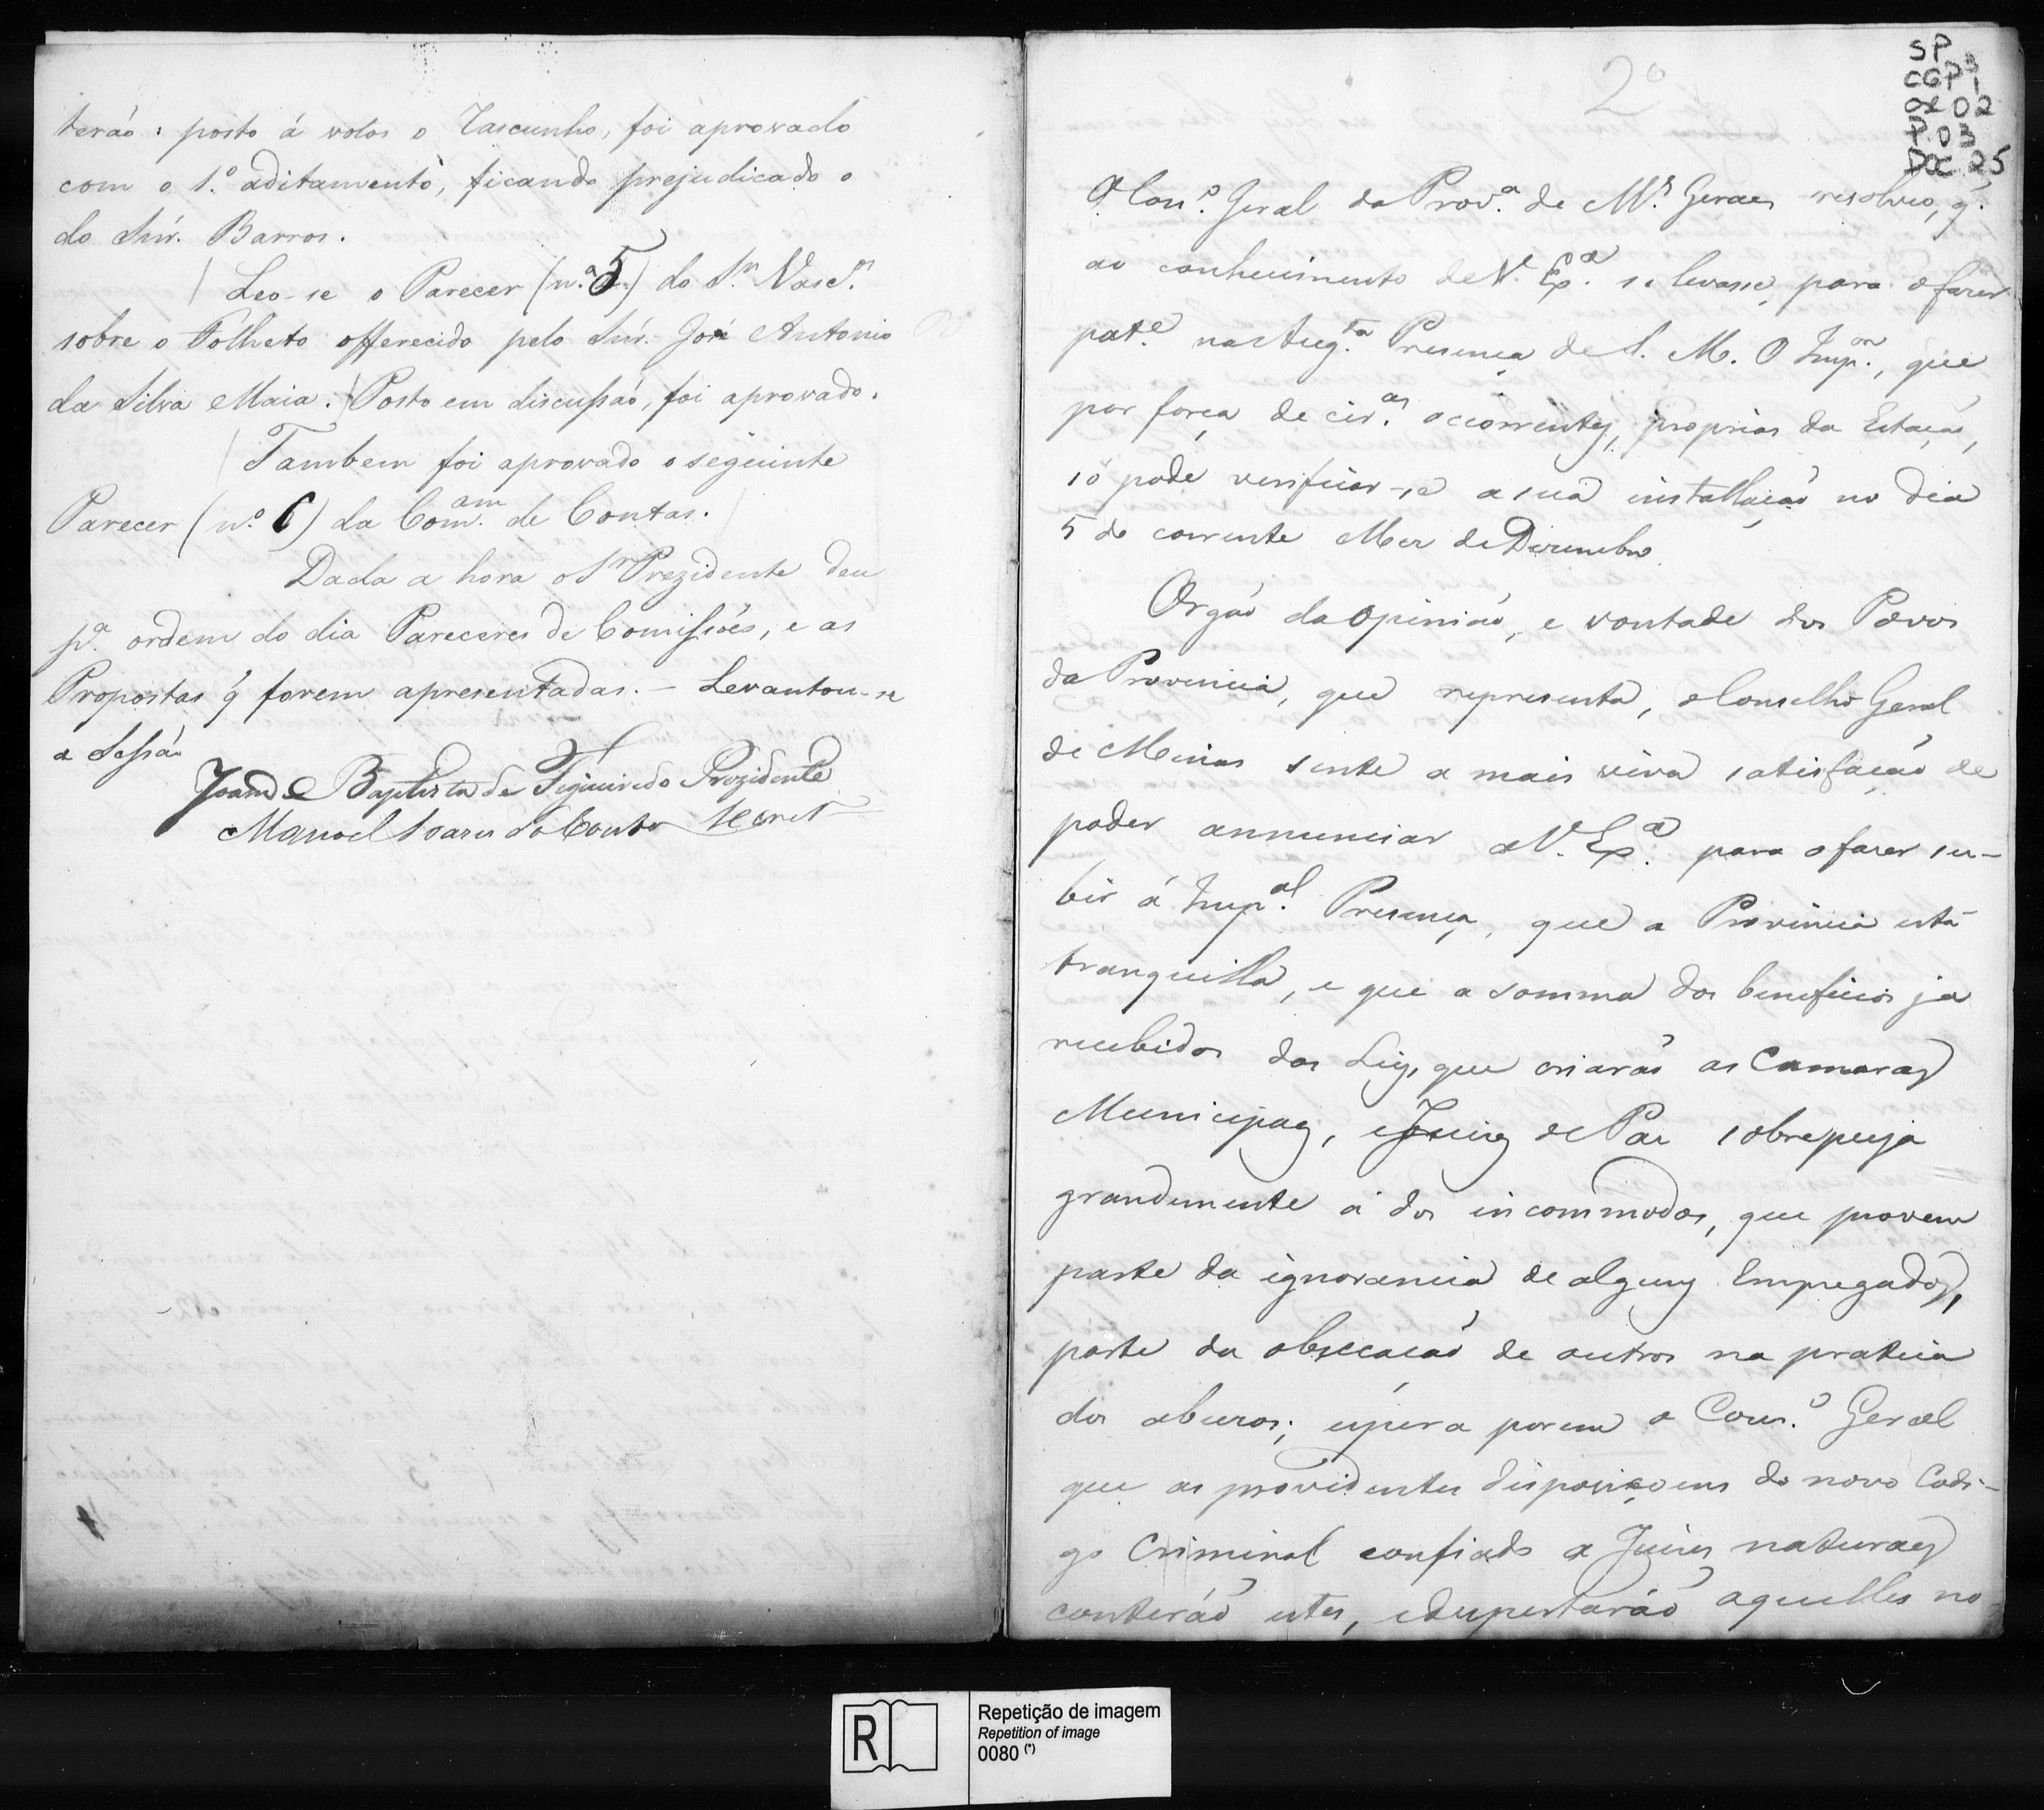 terão: posto á votos o Rascunho, foi aprovado
com o 1.º aditamento, ficando prejudicado o
do Snr. Barros.
Leo-se o Parecer (n.º 5) do Sr. Vasc.os
sobre o Folheto offerecido pelo Snr. José Antonio
da Silva Maia. Posto em discussaõ, foi aprovado.
Tambem foi aprovado o seguinte
Parecer (n.º 6) da Com.am de Contas.
Dada a hora o Sr Prezidente deu
p.a ordem do dia Pareceres de Comissoẽs, e as
Propostas q̃ forem apresentadas. – Levantou-se
a Sessaõ
Joam Baptista de Figueiredo Prezidente
Manoel Soares do Couto Secret
2º
SP
CGP 1
02
03
DOC 25
O Con.º Geral da Prov.a de M.s Geraes resolveo, q.
ao conhecimento de V. Ex.a se levasse, para o fazer
pat.e na Aug.ta Presença de S. M. O Imp.or, que
por força de cir.as occorrentes, proprias da Estação,
só pode verificar-se a sua installação no dia
5 do corrente Mez de Dezembro.
Orgão da opinião, e vontade dos Povos
da Provincia, que representa, o Conselho Geral
de Minas sente a mais viva satisfação de
poder annunciar a V. Ex.a para o fazer su-
bir á Imp.al Presença, que a Provincia está
tranquilla, e que a somma dos beneficios já
recebidos das Leis, que criarão as Camaras
Municipaes, e Juizes de Paz sobrepuja
grandemente á dos incommodos, que provem
parte da ignorancia de alguns Empregados,
parte da obsecação de outros na pratica
dos abuzos; espera porem o Cons.º Geral
que as providentes disposiçoens do novo Codi-
go Criminal confiado a Juizes naturaes
conterão estes, e despertarão aquelles no
R
Repetição de imagem
Repetition of image
0080 (*)